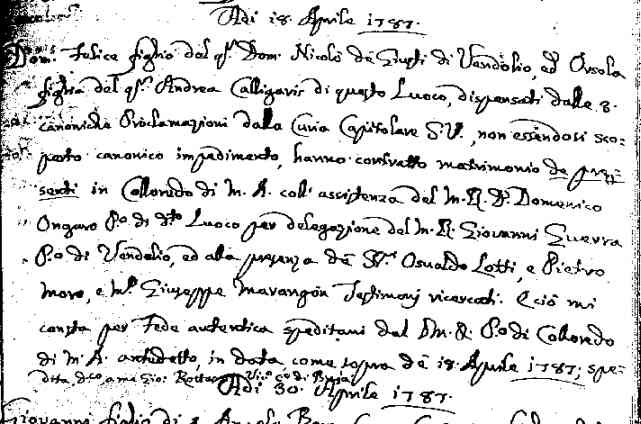 Adi 18. Aprile 1787.
Dom. Felice figlio del qm. Dom. Nicolò de Giusti di Vendolio, ed Orsola
figlia del qm. Andrea Calligaris di questo Luoco, dispensati dalle 3.
canoniche Proclamazioni dalla Curia Capitolare S. V., non essendosi sco=
perto canonico impedimento, hanno contratto matrimonio de prę=
senti in Colloredo di M. A. coll' assistenza del M. R. P. Domenico
Ongaro P.o di d.to Luoco per delegazione del M. R. Giovanni Guerra
P.o di Vendolio, ed alla presenza de Sri. Osvaldo Lotti, e Pietro
Moro, e M.o Giuseppe Marangon Testimonj ricercati. E ciò mi
consta per Fede autentica speditami dal M. R. P.o di Colloredo
di M. A. antidetto, in data come sopra de 18. Aprile 1787; spe=
dita d.co a me Gio:
Adi 30. Aprile 1787.
Giovanni figlio di